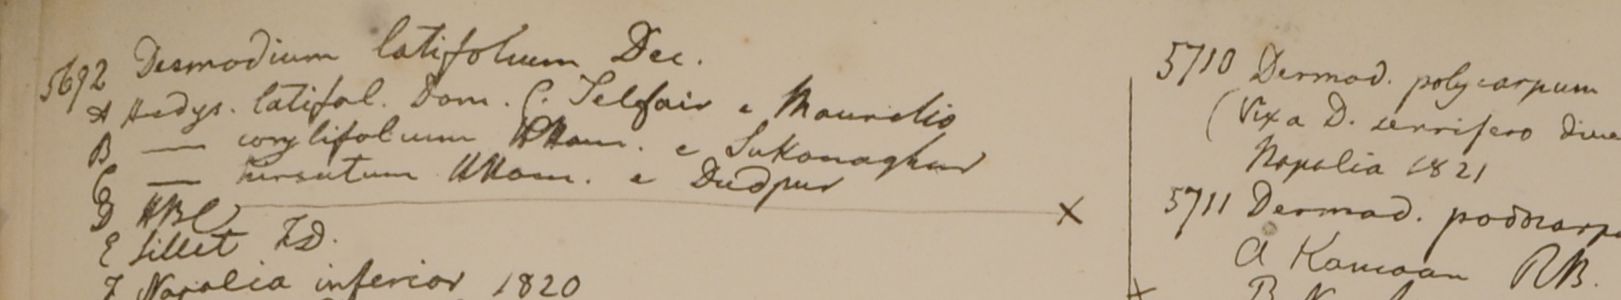 5692 Desmodium latifolium Dec.
A Hedys. latifol. Dom. C. Telfair e Mauritio
B — corylifolium HHam. e Sukanaghur
C — hirsutum HHam. e Dudpur
D HBC
E Sillet FD.
F Napalia inferior 1820
5710 Desmod. polycarpum
(Vix a D. serrifero dive
Napalia 1821
5711 Desmod. podocarp
A Kamoan RB.
B